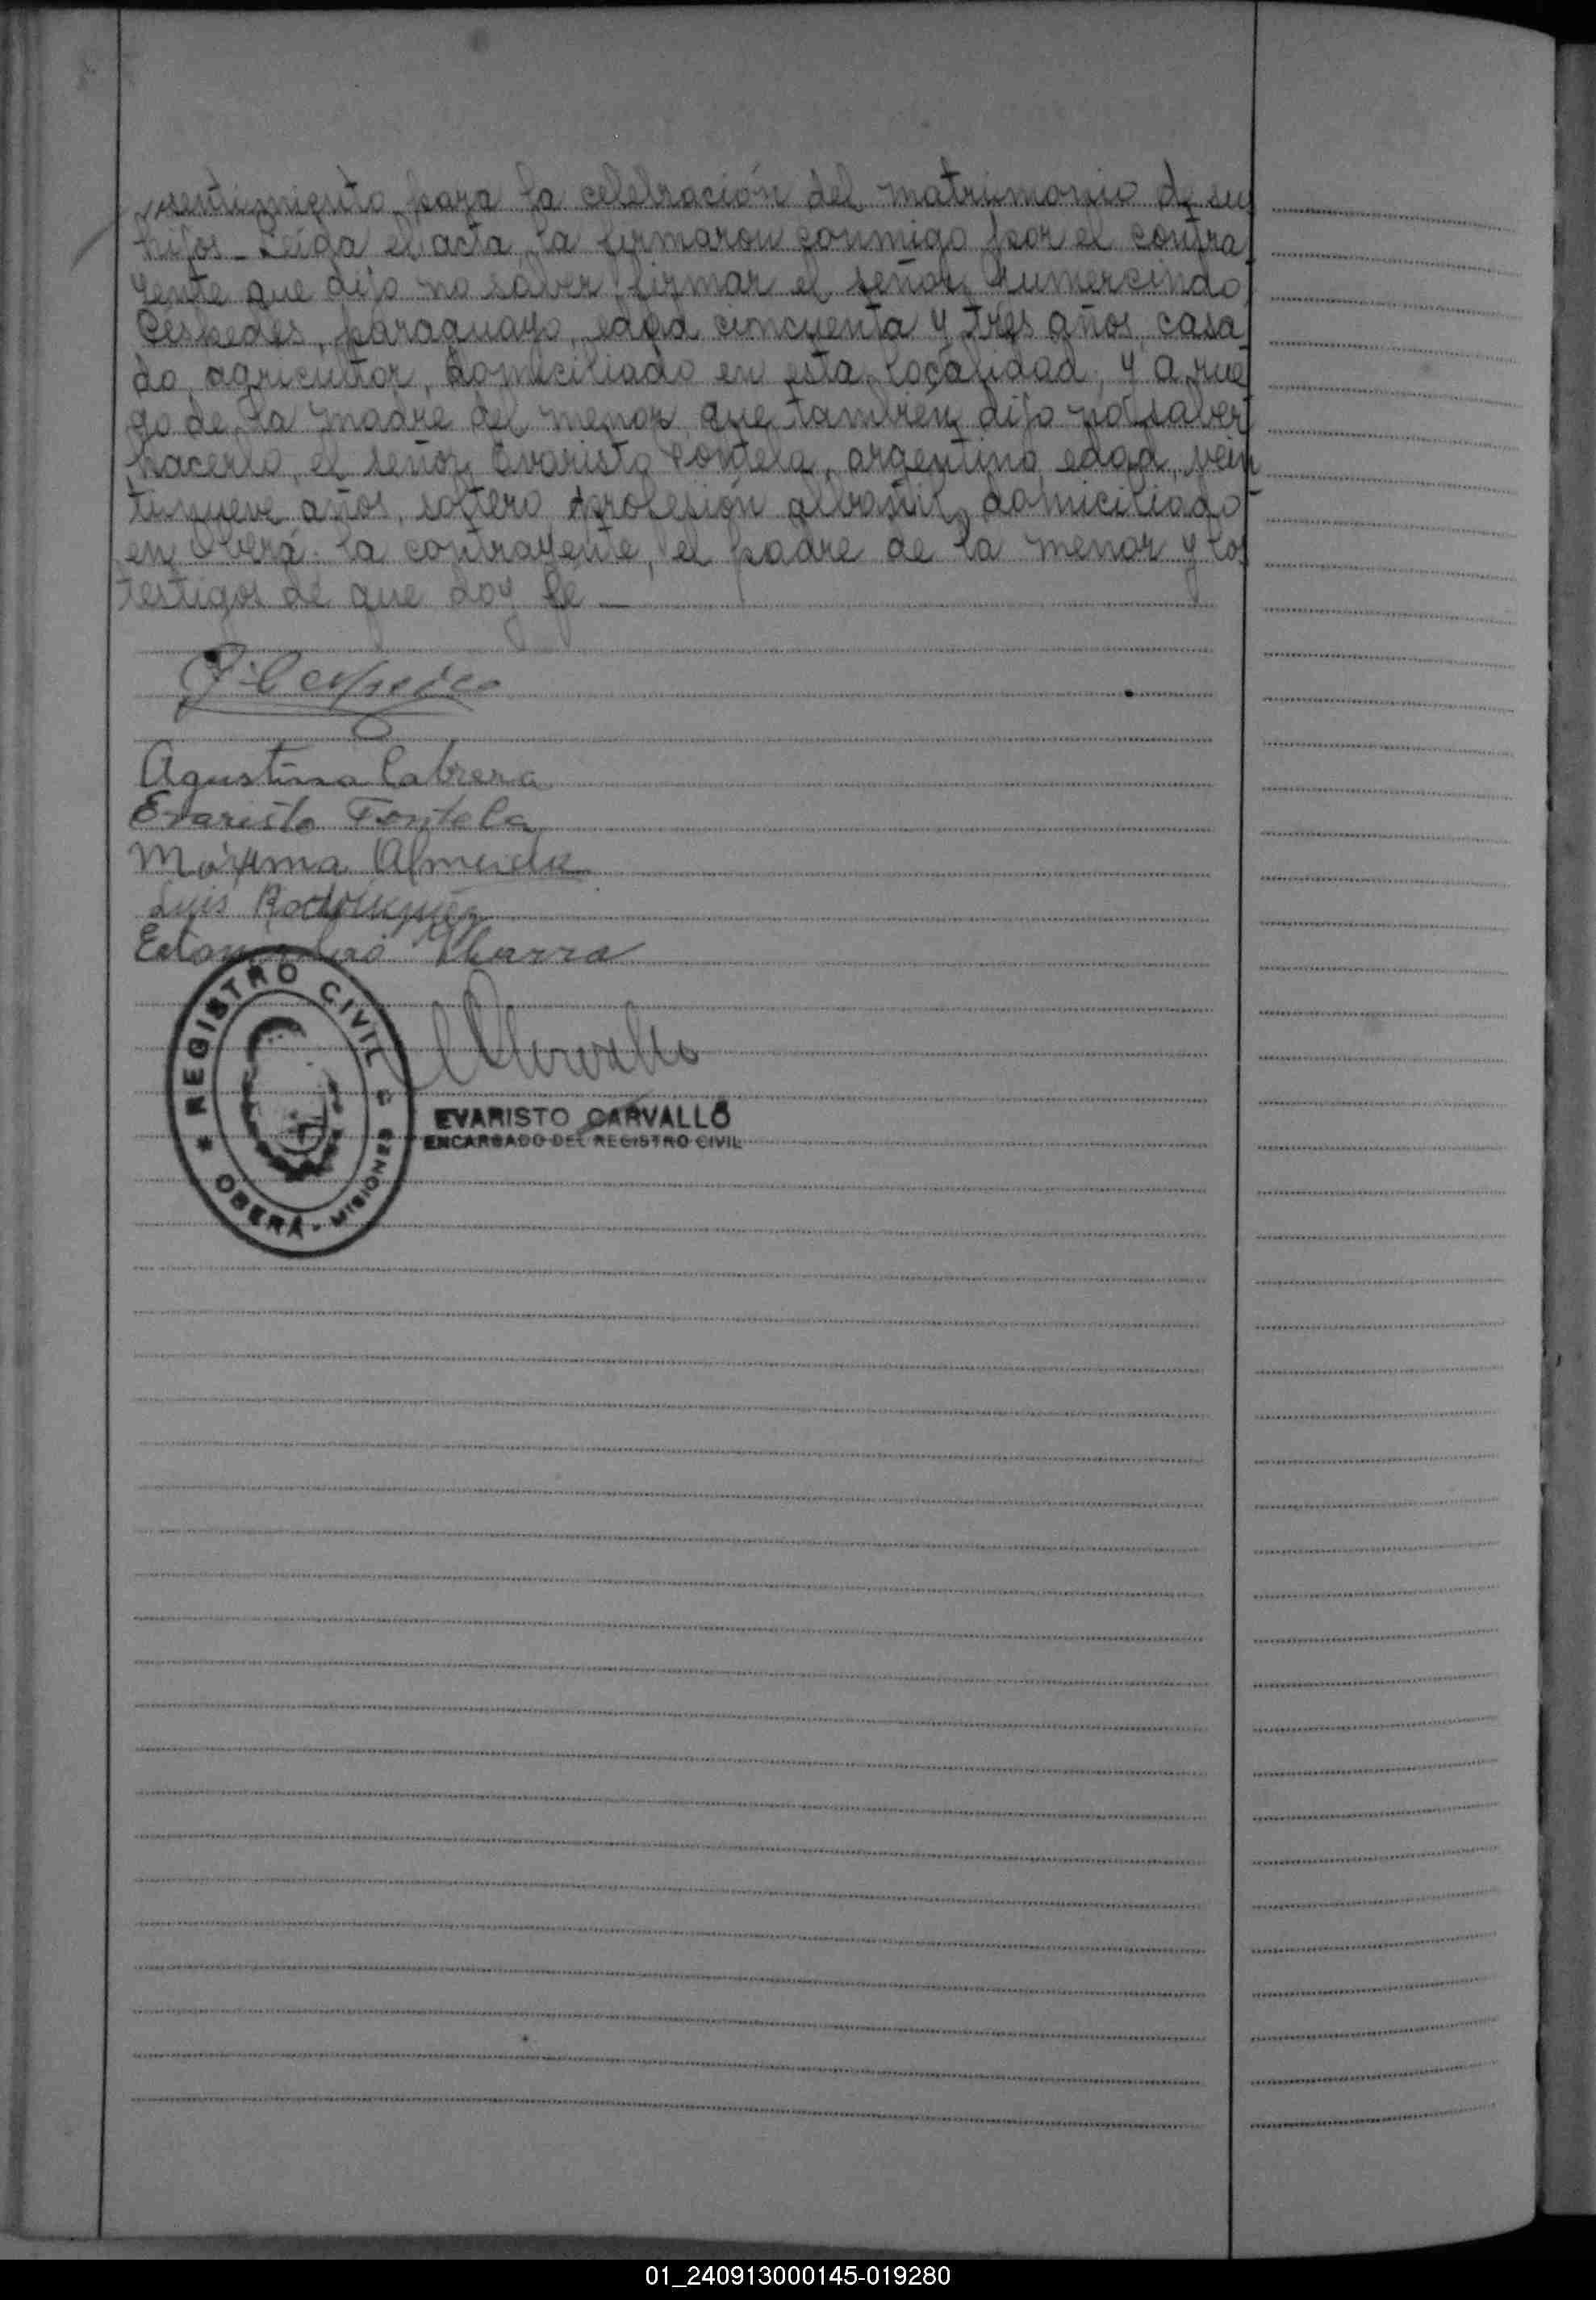 sentimiento para la celebración del matrimonio de sus
hijos_ Leída el acta, la firmaron conmigo por el contra
yente que dijo no saber firmar el señor Gumercindo
Céspedes, paraguayo, edad cincuenta y tres años, casa
do, agricultor, domiciliado en esta localidad, y a rue
go de la madre del menor que también dijo no saber
hacerlo, el señor Evaristo Fontela, argentino, edad, vein
tinueve años, soltero, profesión albañil, domiciliado
en Oberá: la contrayente, el padre de la menor y los
testigos de que doy fé _
Agustina Cabrera
Evaristo Fontela
Máxima Almeida
Luis Rodríguez
Ybarra
REGISTRO CIVIL
OBERÁ - MISIONES
EVARISTO CARVALLO
ENCARGADO DEL REGISTRO CIVIL
01_240913000145-019280